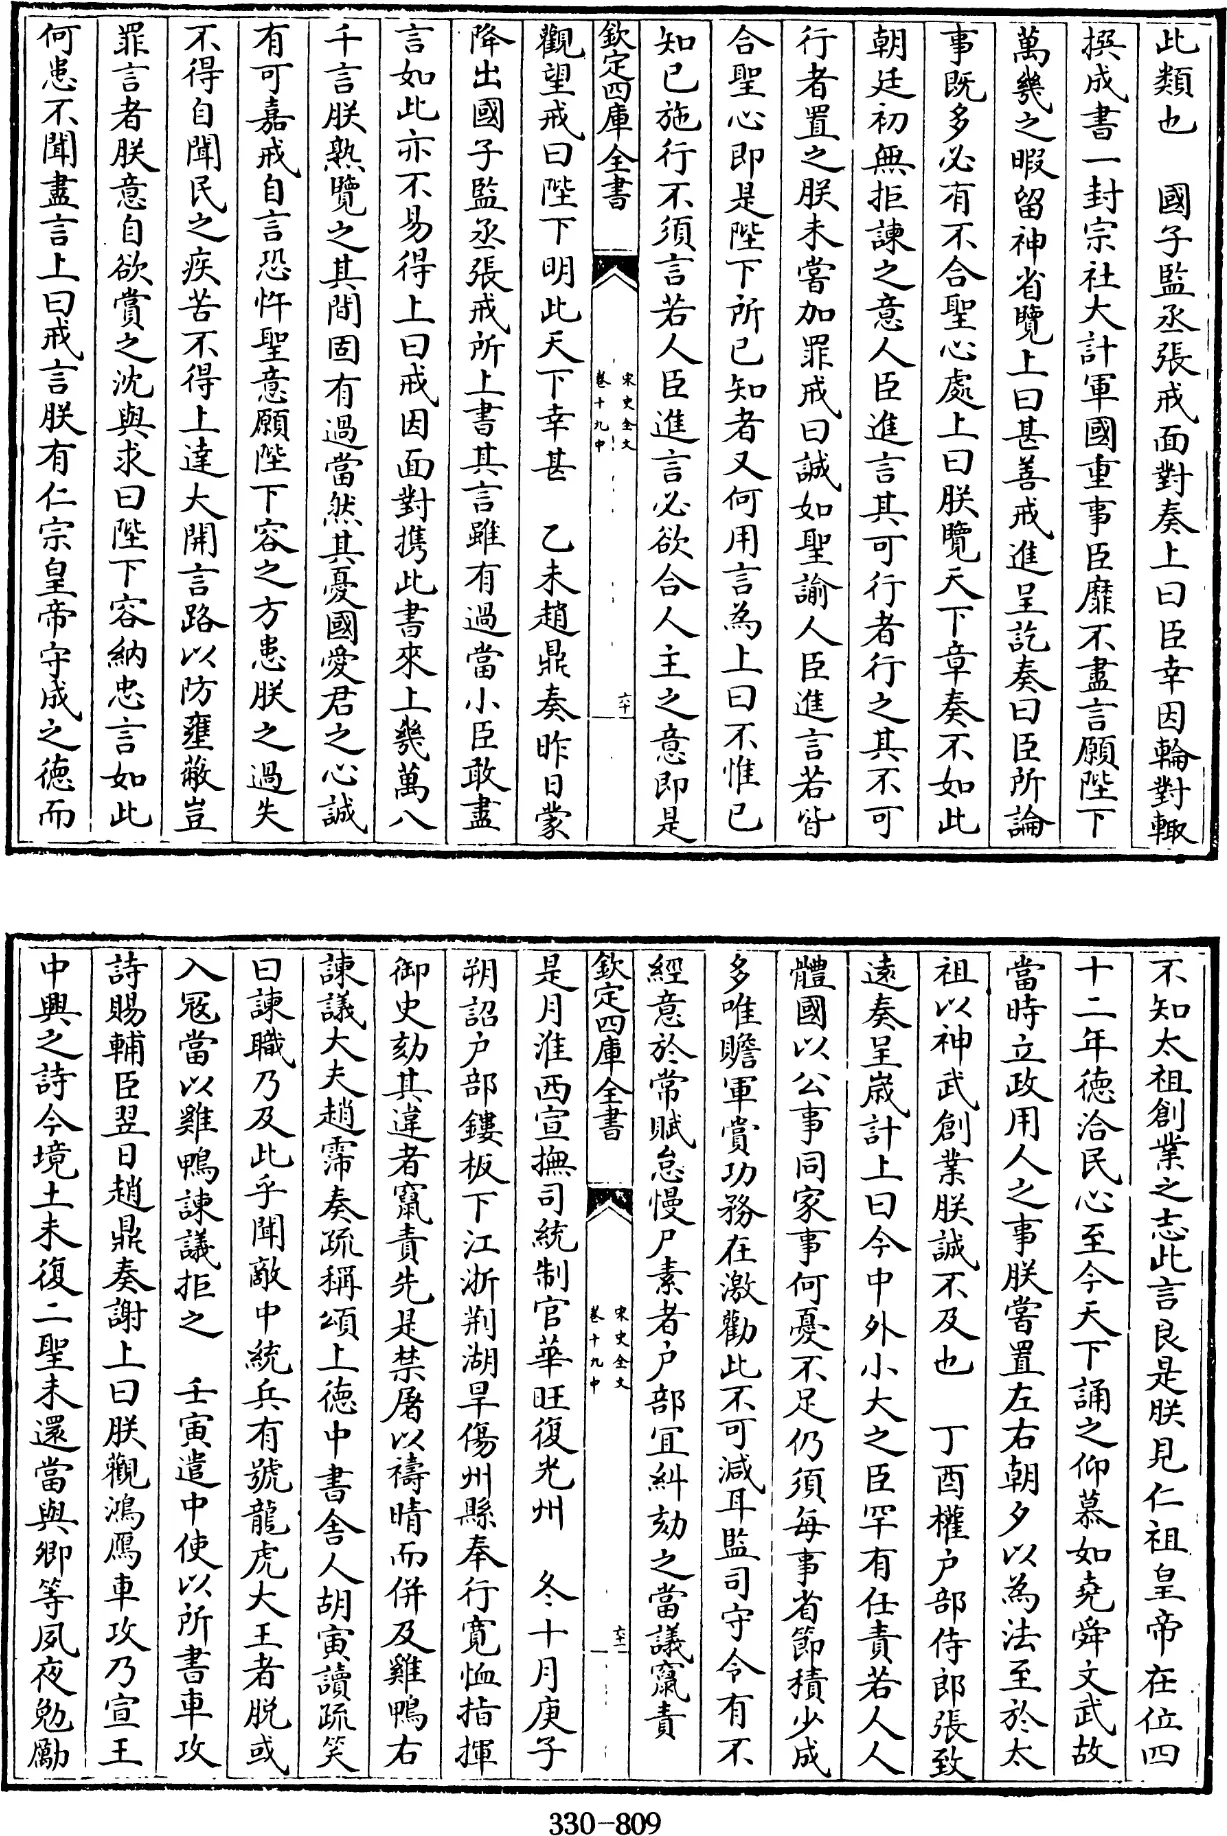 此類也　國子監丞張戒面對奏上曰臣幸因輪對輙
撰成書一封宗社大計軍國重事臣靡不盡言願陛下
萬幾之暇留神省覽上曰甚善戒進呈訖奏曰臣所論
事既多必有不合聖心處上曰朕覽天下章奏不如此
朝廷初無拒諫之意人臣進言其可行者行之其不可
行者置之朕未嘗加罪戒曰誠如聖諭人臣進言若皆
合聖心即是陛下所已知者又何用言為上曰不惟已
知已施行不須言若人臣進言必欲合人主之意即是
欽定四庫全書
宋史全文
卷十九中
六十
觀望戒曰陛下明此天下幸甚　乙未趙鼎奏昨日蒙
降出國子監丞張戒所上書其言雖有過當小臣敢盡
言如此亦不易得上曰戒因面對携此書來上幾萬八
千言朕熟覽之其間固有過當然其憂國愛君之心誠
有可嘉戒自言恐忤聖意願陛下容之方患朕之過失
不得自聞民之疾苦不得上達大開言路以防壅蔽豈
罪言者朕意自欲賞之沈與求曰陛下容納忠言如此
何患不聞盡言上曰戒言朕有仁宗皇帝守成之德而
不知太祖創業之志此言良是朕見仁祖皇帝在位四
十二年德洽民心至今天下誦之仰慕如堯舜文武故
當時立政用人之事朕嘗置左右朝夕以為法至於太
祖以神武創業朕誠不及也　丁酉權户部侍郎張致
遠奏呈嵗計上曰今中外小大之臣罕有任責若人人
體國以公事同家事何憂不足仍須每事省節積少成
多唯贍軍賞功務在激勸此不可減耳監司守令有不
經意於常賦怠慢尸素者户部宜糾劾之當議竄責
欽定四庫全書
宋史全文
卷十九中
六十一
是月淮西宣撫司統制官華旺復光州　冬十月庚子
朔詔户部鏤板下江浙荆湖旱傷州縣奉行寛恤指揮
御史劾其違者竄責先是禁屠以禱晴而併及雞鴨右
諫議大夫趙霈奏疏稱頌上德中書舎人胡寅讀疏笑
曰諫職乃及此乎聞敵中統兵有號龍虎大王者脱或
入冦當以雞鴨諫議拒之　壬寅遣中使以所書車攻
詩賜輔臣翌日趙鼎奏謝上曰朕觀鴻鴈車攻乃宣王
中興之詩今境土未復二聖未還當與卿等夙夜勉勵
330-809